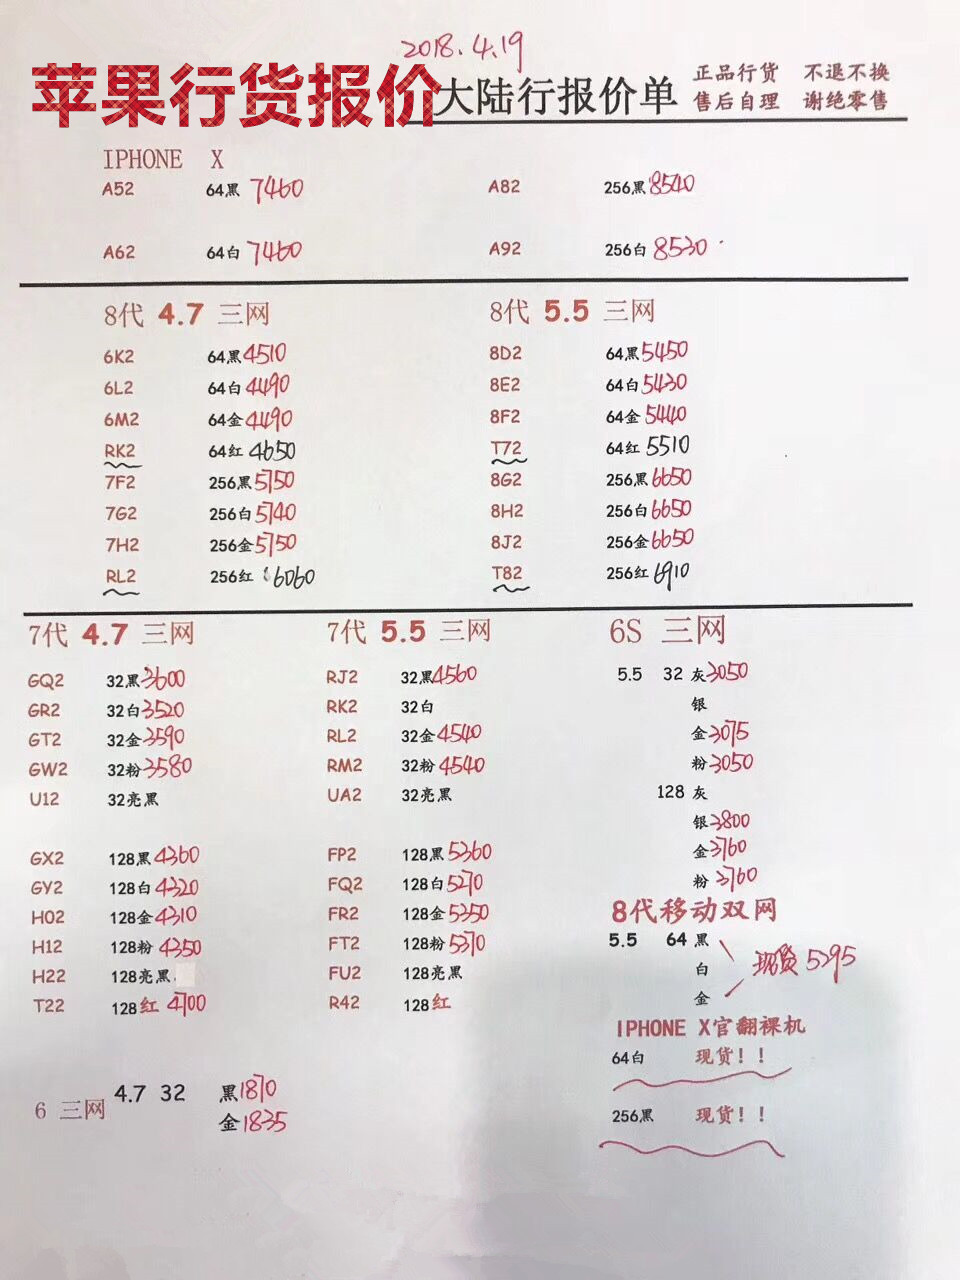 2018.4.19
苹果行货报价
大陆行报价单
正品行货 不退不换
售后自理 谢绝零售
IPHONE X
A52 64黑 7460 A82 256黑 8540
A62 64白 7460 A92 256白 8530
8代 4.7 三网 8代 5.5 三网
6K2 64黑 4510 8D2 64黑 5450
6L2 64白 4490 8E2 64白 5430
6M2 64金 4490 8F2 64金 5440
RK2 64红 4650 T72 64红 5510
7F2 256黑 5750 8G2 256黑 6650
7G2 256白 5740 8H2 256白 6650
7H2 256金 5750 8J2 256金 6650
RL2 256红 6060 T82 256红 6910
7代 4.7 三网 7代 5.5 三网 6S 三网
GQ2 32黑 3600 RJ2 32黑 4560 5.5 32 灰 3050
GR2 32白 3520 RK2 32白 银
GT2 32金 3590 RL2 32金 4540 金 3075
GW2 32粉 3580 RM2 32粉 4540 粉 3050
U12 32亮黑 UA2 32亮黑 128 灰
银 3800
GX2 128黑 4360 FP2 128黑 5360 金 3760
GY2 128白 4320 FQ2 128白 5270 粉 3760
H02 128金 4310 FR2 128金 5350 8代移动双网
H12 128粉 4350 FT2 128粉 5370 5.5 64 黑
H22 128亮黑 FU2 128亮黑 白 现货 5395
T22 128红 4700 R42 128红 金
IPHONE X官翻裸机
64白 现货！！
6 三网 4.7 32 黑 1870
金 1835
256黑 现货！！